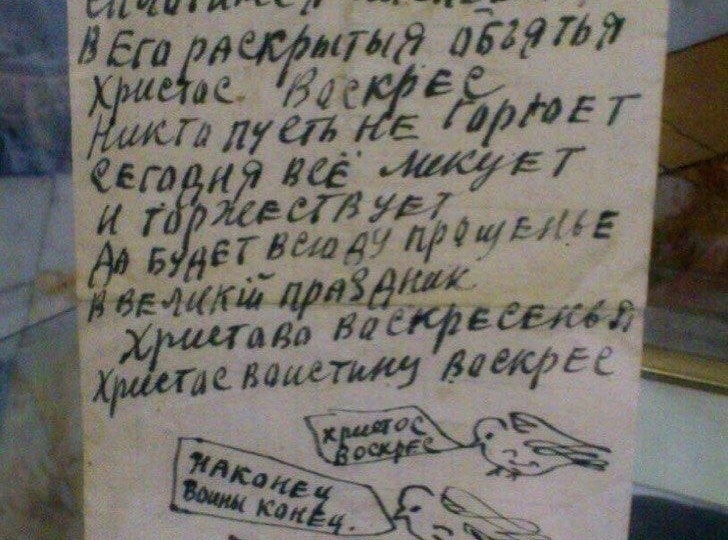 В ЕГО РАСКРЫТЫЯ ОБЪЯТЬЯ
ХРИСТОС ВОСКРЕС
НИКТО ПУСТЬ НЕ ГОРЮЕТ
СЕГОДНЯ ВСЁ ЛИКУЕТ
И ТОРЖЕСТВУЕТ
ДА БУДЕТ ВСЮДУ ПРОЩЕНЬЕ
В ВЕЛИКІЙ ПРАЗДНИК
ХРИСТОВО ВОСКРЕСЕНЬЯ
ХРИСТОС ВОИСТИНУ ВОСКРЕС
ХРИСТОС
ВОСКРЕС
НАКОНЕЦ
ВОИНЫ КОНЕЦ.